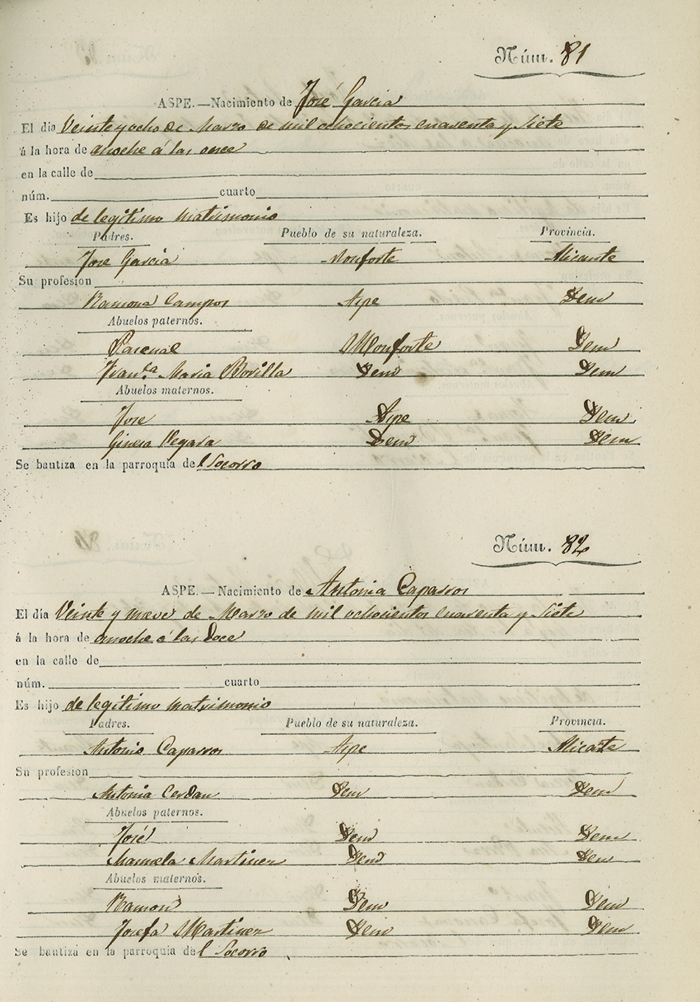 Núm. 81
ASPE.—Nacimiento de José Garcia
El dia Veinte y ocho de Marzo de mil ochocientos cuarenta y siete
á la hora de anoche á las once
en la calle de
núm. cuarto
Es hijo de legitimo matrimonio
Padres. Pueblo de su naturaleza. Provincia.
Jose Garcia Monforte Alicante
Su profesion
Ramona Campos Aspe Idem
Abuelos paternos.
Pascual Monforte Idem
Fran.ca Maria Idem Idem
Abuelos maternos.
Jose Aspe Idem
Ginesa Vegara Idem Idem
Se bautiza en la parroquia del Socorro
Núm. 82
ASPE.—Nacimiento de Antonia Caparros
El día Veinte y nueve de Marzo de mil ochocientos cuarenta y siete
á la hora de anoche á las doce
en la calle de
núm. cuarto
Es hijo de legitimo matrimonio
Padres. Pueblo de su naturaleza. Provincia.
Antonio Caparros Aspe Alicate
Su profesion
Antonia Cerdan Idem Idem
Abuelos paternos.
José Idem Idem
Manuela Martinez Idem Idem
Abuelos maternos.
Ramon Idem Idem
Josefa Martinez Idem Idem
Se bautiza en la parroquia del Socorro